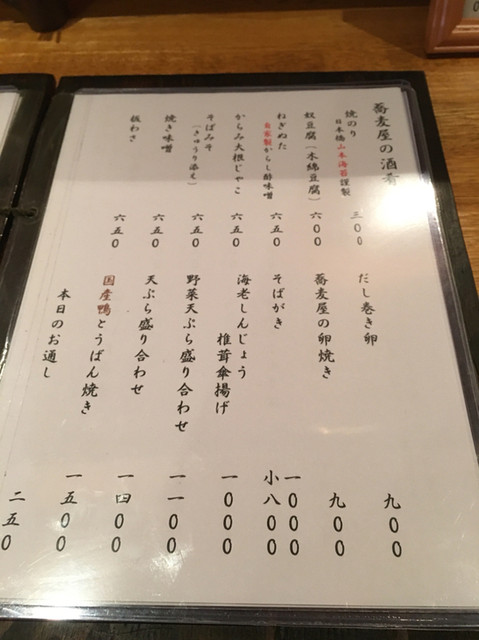 蕎麦屋の酒肴
焼のり
日本橋山本海苔謹製
三〇〇
奴豆腐(木綿豆腐)
六〇〇
ねぎぬた
自家製からし酢味噌
六五〇
からみ大根じゃこ
六五〇
そばみそ
(きゅうり添え)
六五〇
焼き味噌
六五〇
板わさ
六五〇
だし巻き卵
九〇〇
蕎麦屋の卵焼き
九〇〇
そばがき
一〇〇〇
小八〇〇
海老しんじょう
椎茸傘揚げ
一〇〇〇
野菜天ぷら盛り合わせ
一一〇〇
天ぷら盛り合わせ
一四〇〇
国産鴨とうばん焼き
一五〇〇
本日のお通し
二五〇